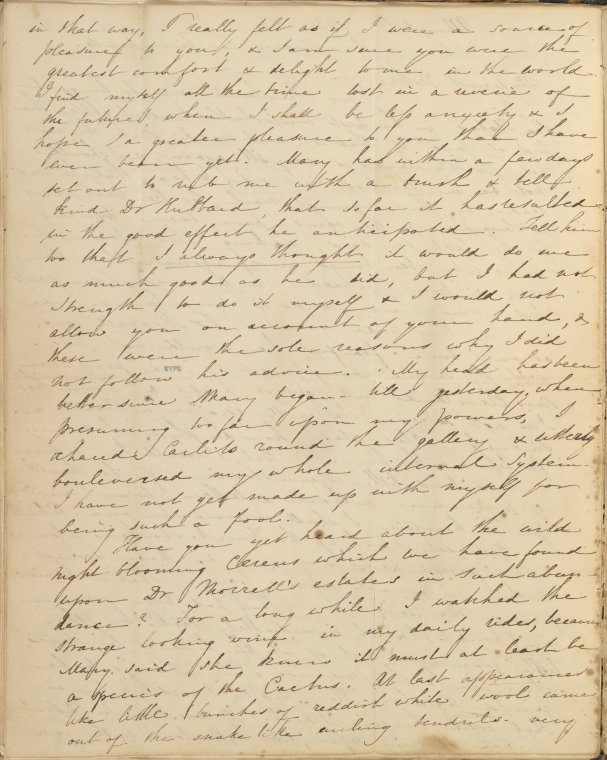 in that way, I really felt as if I were a source of
pleasure to yours, & I am sure you were the
greatest comfort & delight to me in the world.
I find myself all the time lost in a reverie of
the future, when I shall be less anxiety & I
hope a greater pleasure to you than I have
ever been yet. Mary has within a few days
set out to rub me with a brush & tell
kind Dr Hubbard, that so far it has resulted
in the good effect he anticipated. Tell him
too that I always thought it would do me
as much good as he did, but I had not
strength to do it myself & I would not
allow you on account of your hand, &
these were the sole reasons why I did
not follow his advice. My head has been
better since Mary began till yesterday, when
presuming too far upon my powers, I
chased Carlito round the gallery & utterly
bouleversed my whole internal system.
I have not yet made up with myself for
being such a fool.
Have you yet heard about the wild
night blooming Cereus which we have found
upon Dr Morrell's estates in such abun-
dance? For a long while I watched the
strange looking vine in my daily rides, because
Mary said she knew it must at least be
a species of the Cactus. At last appearances
like little bunches of reddish white wool came
out of the snake like curling tendrils. very
NYPL